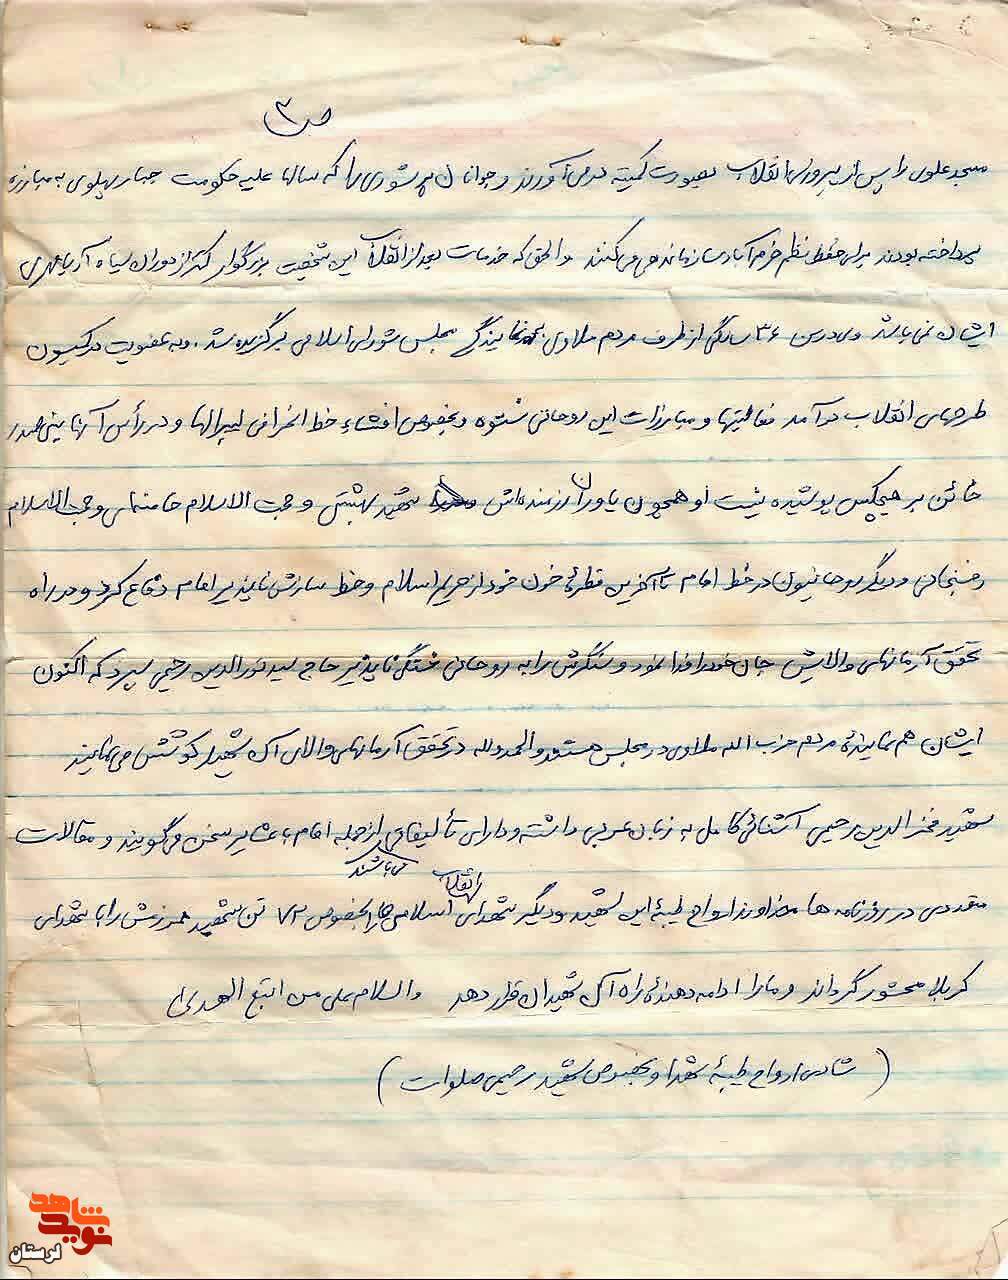 ص ۳
مسجد علوی را پس از پیروزی انقلاب بصورت کمیته درمی‌آورند و جوانان پرشوری را که سالها علیه حکومت جبار پهلوی به مبارزه
پرداخته بودند برای حفظ نظم خرم‌آباد سازماندهی می‌کنند والحق که خدمات بعد از انقلاب این شخصیت بزرگوار کمتر از دوران سیاه آریامهری
ایشان نمی‌باشد وی در سن ۳۶ سالگی از طرف مردم ملاوی به نمایندگی مجلس شورای اسلامی برگزیده شد. و به عضویت در کمیسیون
طرحهای انقلاب درآمد فعالیتها و مبارزات این روحانی نستوه و بخصوص افشاء خط انحرافی لیبرالها و در رأس آنها بنی صدر
خائن بر هیچکس پوشیده نیست او همچون یاوران رزمنده‌اش شهید بهشتی و حجت الاسلام خامنه‌ای و حجت الاسلام
رفسنجانی و دیگر روحانیون در خط امام تا آخرین قطرهٔ خون خود از حریم اسلام و خط سازش ناپذیر امام دفاع کرد و در راه
تحقق آرمانهای والایش جان خود را فدا نمود و سنگرش را به روحانی خستگی ناپذیر حاج سید نورالدین رحیمی سپرد که اکنون
ایشان هم نمایندهٔ مردم حزب الله ملاوی در مجلس هستند والحمدولله در تحقق آرمانهای والای آن شهید کوشش می‌نمایند
شهید فخرالدین رحیمی آشنائی کامل به زبان عربی داشته و دارای تألیفاتی از جمله امام با عشایر سخن می‌گویند و مقالات
می‌باشند
متعددی در روزنامه ها خداوند ارواح طیبهٔ این شهید و دیگر شهدای انقلاب اسلامی ما را بالخصوص ۷۲ تن شهید همرزمش را با شهدای
کربلا محشور گرداند و ما را ادامه دهندهٔ راه آن شهیدان قرار دهد والسلام علی من اتبع الهدی
(شادی ارواح طیبهٔ شهدا و بخصوص شهید رحیمی صلوات)
نوید شاهد
لرستان